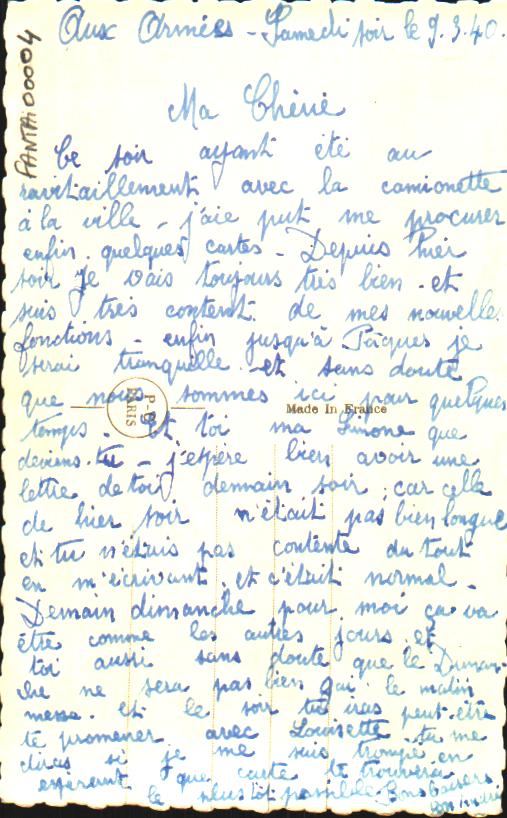 FANTAI 00004
Aux Armées - Samedi soir le 9.3.40.
Ma Chérie
Ce soir ayant été au
ravitaillement avec la camionette
à la ville - j'aie put me procurer
enfin quelques cartes - Depuis hier
soir je vais toujours très bien et
suis très content de mes nouvelle
fonctions - enfin jusqu'à Pâques je
serai tranquelle et sans doute
que nous sommes ici pour quelques
P-C
PARIS
Made In France
temps. Et toi ma Simone que
deviens-tu - j'espère bien avoir une
lettre de toi demmain soir ; car celle
de hier soir n'était pas bien longue
et tu n'étais pas contente du tout
en m'écrivant et c'était normal -
Demain dimanche pour moi ça va
être comme les autres jours et
toi aussi sans doute que le Diman-
che ne sera pas bien gai le matin
messe et le soir tu iras peut-être
te promener avec Louisette tu me
diras si je me suis trompé en
espérant que carte te trouvera
le plus tôt possible Bons baisers